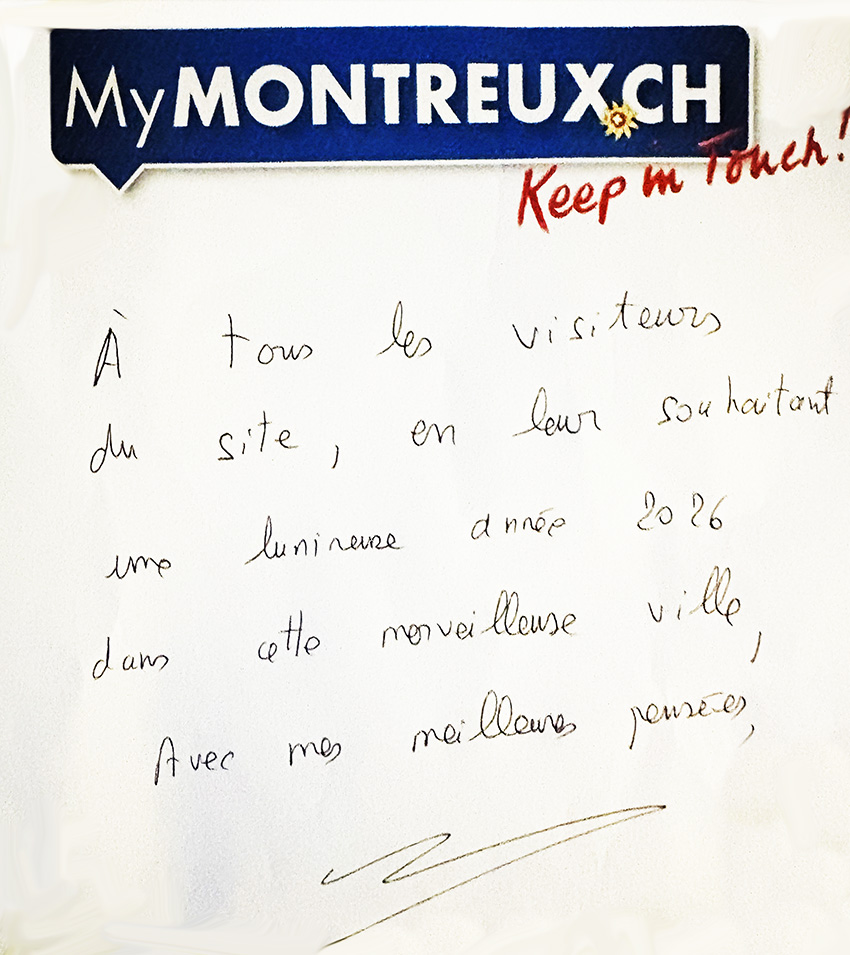 MyMONTREUX.CH
Keep in Touch!
À tous les visiteurs
du site, en leur souhaitant
une lumineuse année 2026
dans cette merveilleuse ville,
Avec mes meilleures pensées,